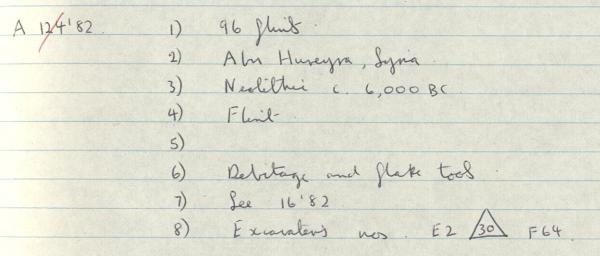 A 124'82 1) 96 flint
2) Abu Hureyra, Syria
3) Neolithic c. 6,000 BC
4) Flint
5)
6) Debitage and flake tools
7) See 16'82
8) Excavators nos. E2 30 F64